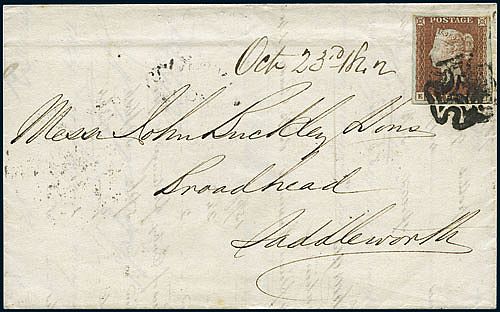 POSTAGE
Oct 23rd 1842
Messr John Buckley & Sons
Broadhead
Saddleworth